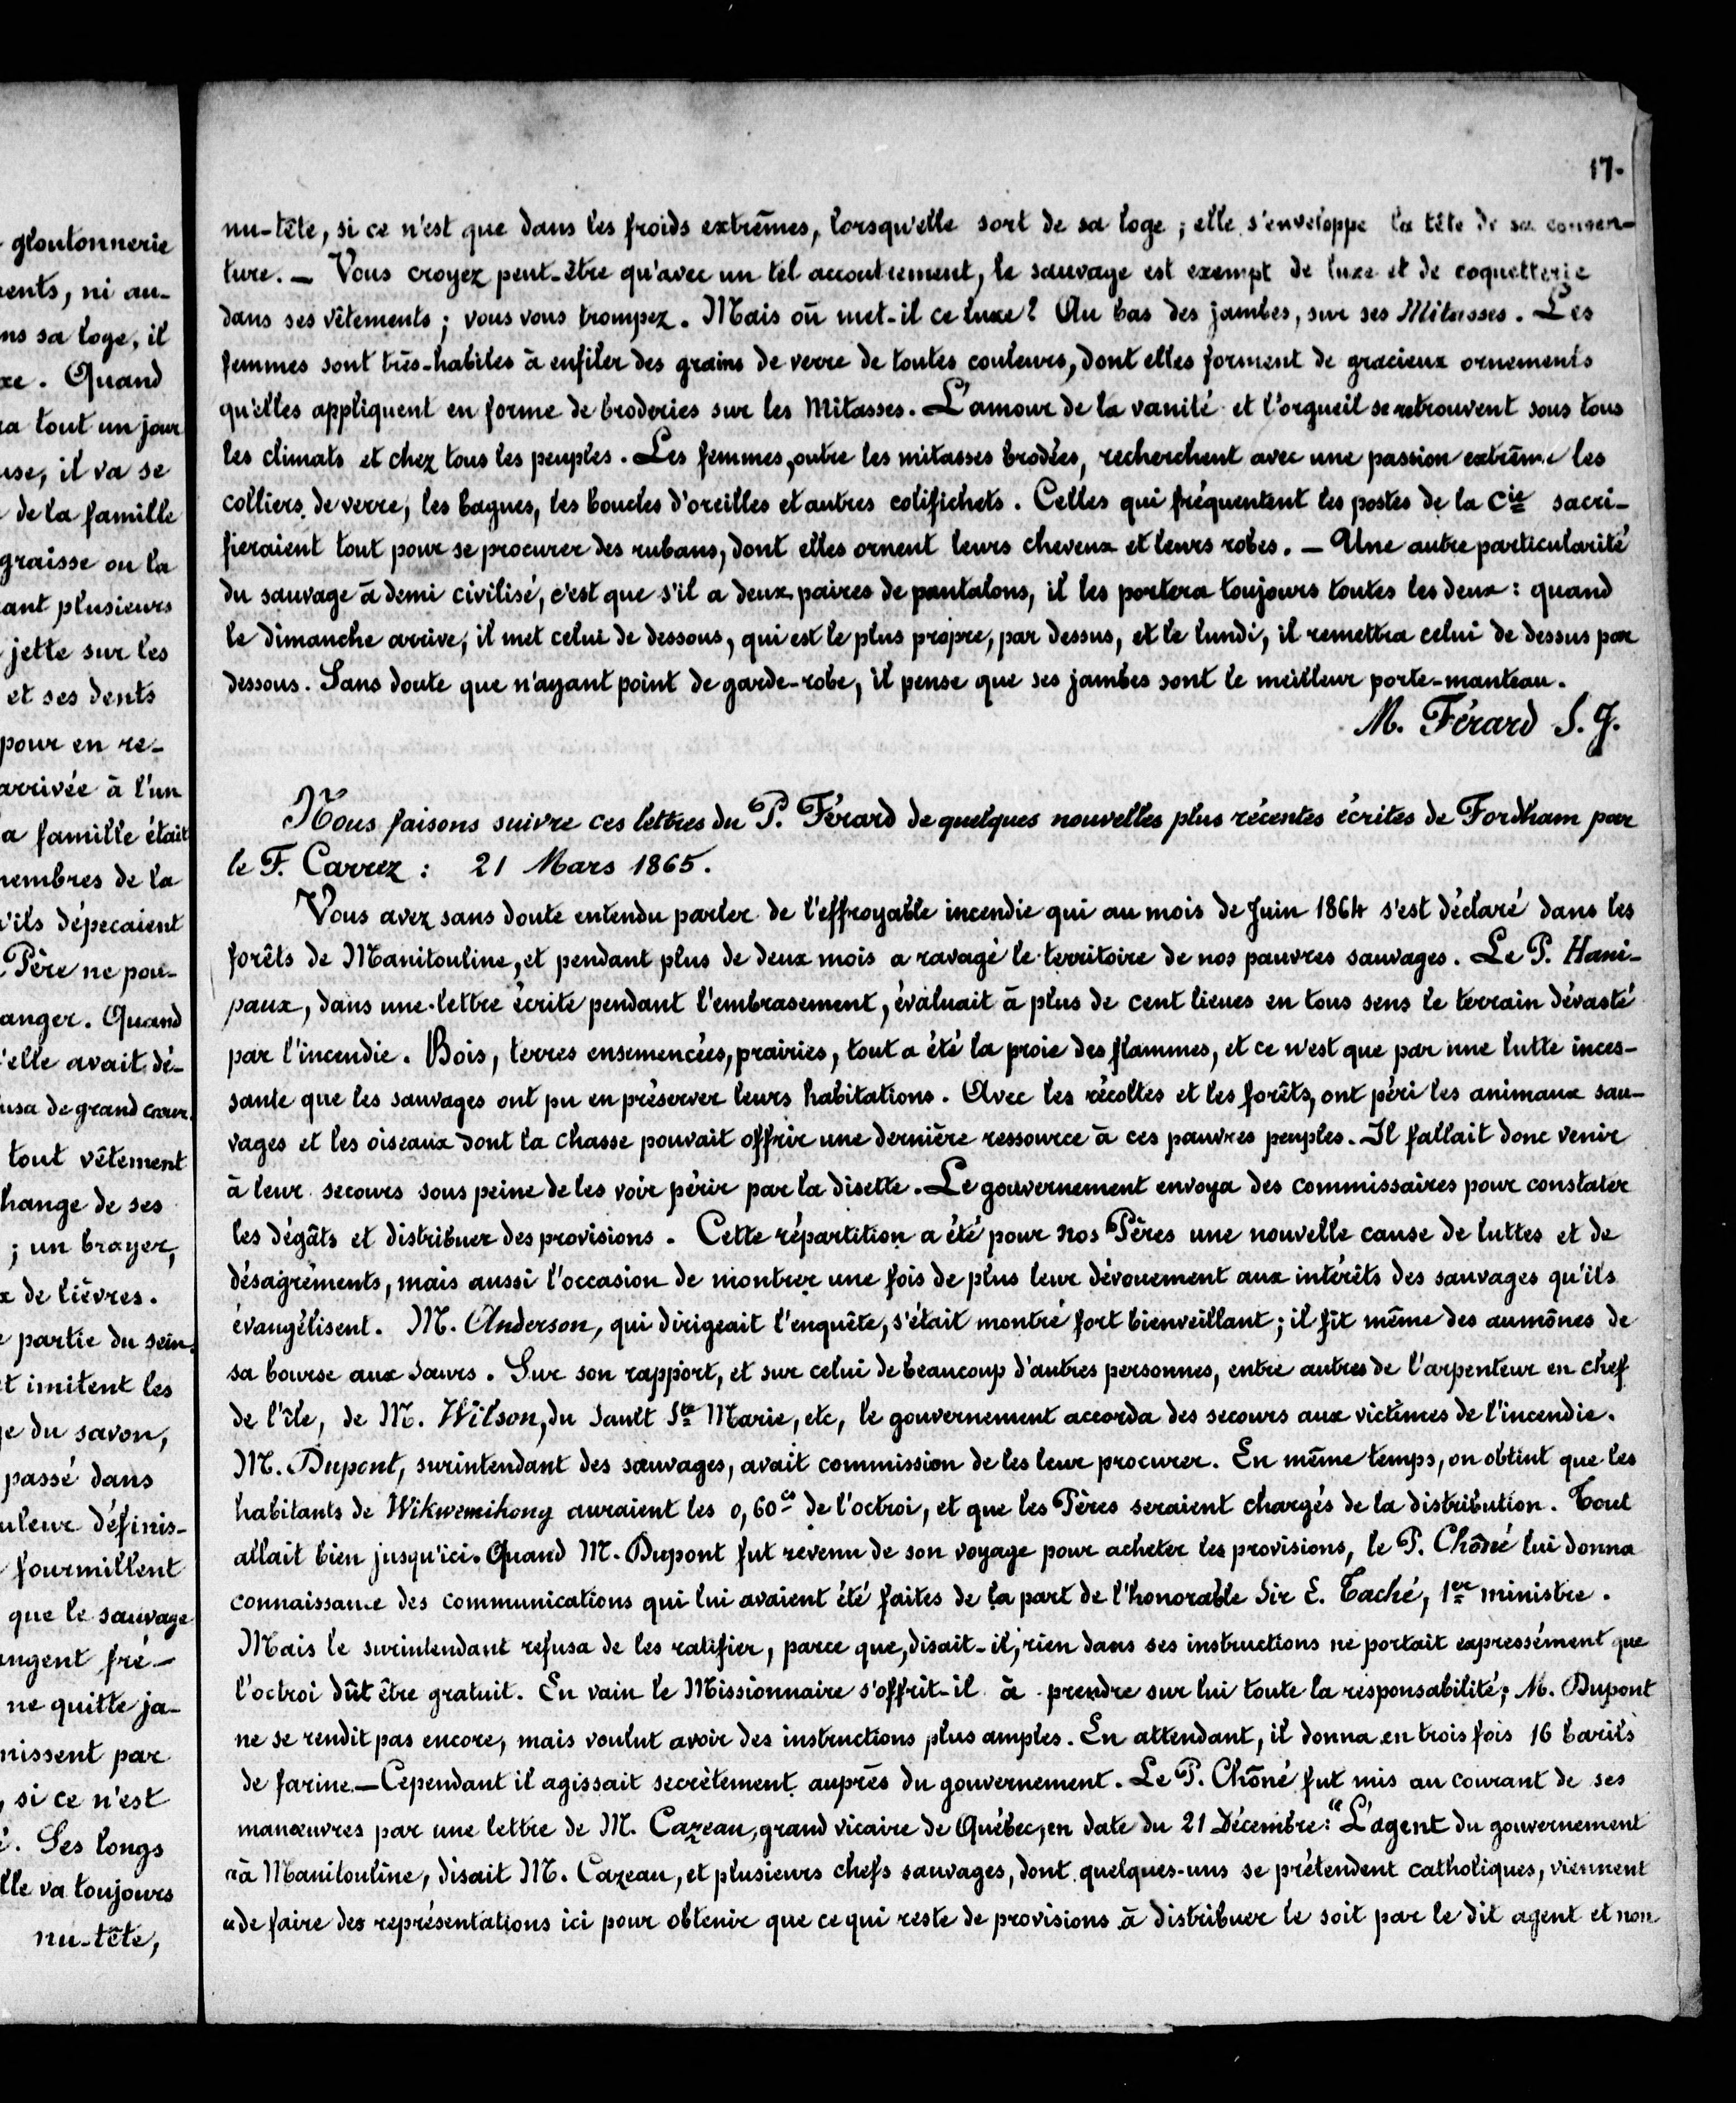 gloutonnerie
ents, ni au-
ns sa loge, il
xe. Quand
ra tout un jour
use, il va se
de la famille
graisse ou la
ant plusieurs
jette sur les
et ses dents
pour en re-
arrivée à l'un
a famille était
embres de la
'ils dépecaient
Père ne pou-
anger. Quand
'elle avait dé-
usa de grand cœur.
tout vêtement
hange de ses
; un brayer,
x de lièvres.
partie du sein.
t imitent les
e du savon,
passé dans
uleur définis-
fourmillent
que le sauvage
angent fré-
ne quitte ja-
nissent par
, si ce n'est
é. Ses longs
lle va toujours
nu-tête,
17.
nu-tête, si ce n'est que dans les froids extrêmes, lorsqu'elle sort de sa loge ; elle s'enveloppe la tête de sa couver-
ture. — Vous croyez peut-être qu'avec un tel accoutrement, le sauvage est exempt de luxe et de coquetterie
dans ses vêtements ; vous vous trompez. Mais où met-il ce luxe ? Au bas des jambes, sur ses Mitasses. Les
femmes sont très-habiles à enfiler des grains de verre de toutes couleurs, dont elles forment de gracieux ornements
qu'elles appliquent en forme de broderies sur les Mitasses. L'amour de la vanité et l'orgueil se retrouvent sous tous
les climats et chez tous les peuples. Les femmes, outre les mitasses brodées, recherchent avec une passion extrême les
colliers de verre, les bagues, les boucles d'oreilles et autres colifichets. Celles qui fréquentent les postes de la Cie sacri-
fieraient tout pour se procurer des rubans, dont elles ornent leurs cheveux et leurs robes. — Une autre particularité
du sauvage à demi civilisé, c'est que s'il a deux paires de pantalons, il les portera toujours toutes les deux : quand
le dimanche arrive, il met celui de dessous, qui est le plus propre, par dessus, et le lundi, il remettra celui de dessus par
dessous. Sans doute que n'ayant point de garde-robe, il pense que ses jambes sont le meilleur porte-manteau.
M. Férard S. J.
Nous faisons suivre ces lettres du P. Férard de quelques nouvelles plus récentes écrites de Fordham par
le F. Carrez : 21 Mars 1865.
Vous avez sans doute entendu parler de l'effroyable incendie qui au mois de Juin 1864 s'est déclaré dans les
forêts de Manitouline, et pendant plus de deux mois a ravagé le territoire de nos pauvres sauvages. Le P. Hani-
paux, dans une lettre écrite pendant l'embrasement, évaluait à plus de cent lieues en tous sens le terrain dévasté
par l'incendie. Bois, terres ensemencées, prairies, tout a été la proie des flammes, et ce n'est que par une lutte inces-
sante que les sauvages ont pu en préserver leurs habitations. Avec les récoltes et les forêts, ont péri les animaux sau-
vages et les oiseaux dont la chasse pouvait offrir une dernière ressource à ces pauvres peuples. Il fallait donc venir
à leur secours sous peine de les voir périr par la disette. Le gouvernement envoya des commissaires pour constater
les dégâts et distribuer des provisions. Cette répartition a été pour nos Pères une nouvelle cause de luttes et de
désagréments, mais aussi l'occasion de montrer une fois de plus leur dévouement aux intérêts des sauvages qu'ils
évangélisent. M. Anderson, qui dirigeait l'enquête, s'était montré fort bienveillant ; il fit même des aumônes de
sa bourse aux sœurs. Sur son rapport, et sur celui de beaucoup d'autres personnes, entre autres de l'arpenteur en chef
de l'île, de M. Wilson, du Sault Ste Marie, etc, le gouvernement accorda des secours aux victimes de l'incendie.
M. Dupont, surintendant des sauvages, avait commission de les leur procurer. En même temps, on obtint que les
habitants de Wikwemikong auraient les 0,60cs de l'octroi, et que les Pères seraient chargés de la distribution. Tout
allait bien jusqu'ici. Quand M. Dupont fut revenu de son voyage pour acheter les provisions, le P. Chôné lui donna
connaissance des communications qui lui avaient été faites de la part de l'honorable Sir E. Taché, 1er ministre.
Mais le surintendant refusa de les ratifier, parce que, disait-il, rien dans ses instructions ne portait expressément que
l'octroi dût être gratuit. En vain le Missionnaire s'offrit-il à prendre sur lui toute la responsabilité ; M. Dupont
ne se rendit pas encore, mais voulut avoir des instructions plus amples. En attendant, il donna en trois fois 16 barils
de farine. — Cependant il agissait secrètement auprès du gouvernement. Le P. Chôné fut mis au courant de ses
manœuvres par une lettre de M. Cazeau, grand vicaire de Québec, en date du 21 Décembre : "L'agent du gouvernement
"à Manitouline, disait M. Cazeau, et plusieurs chefs sauvages, dont quelques-uns se prétendent catholiques, viennent
"de faire des représentations ici pour obtenir que ce qui reste de provisions à distribuer le soit par le dit agent et non